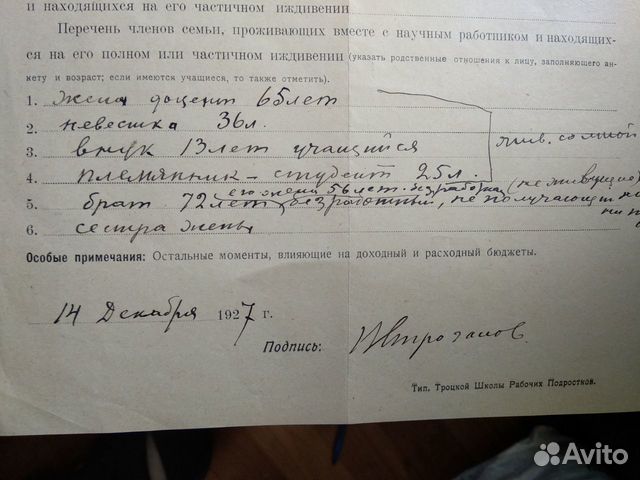 и находящихся на его частичном иждивении
Перечень членов семьи, проживающих вместе с научным работником и находящих-
ся на его полном или частичном иждивении (указать родственные отношения к лицу, заполняющего ан-
кету и возраст; если имеются учащиеся, то также отметить).
1. Жена доцент 65 лет
2. невестка 36 л.
3. внук 13 лет учащийся
жив. со мной
4. племянник - студент 25 л.
его жена 56 лет. безработная (не живущие)
5. брат 72 лет, безработный, не получающий
6. сестра жены
Особые примечания: Остальные моменты, влияющие на доходный и расходный бюджеты.
14 Декабря 1927 г.
Подпись:
Тип. Троцкой Школы Рабочих Подростков.
Avito